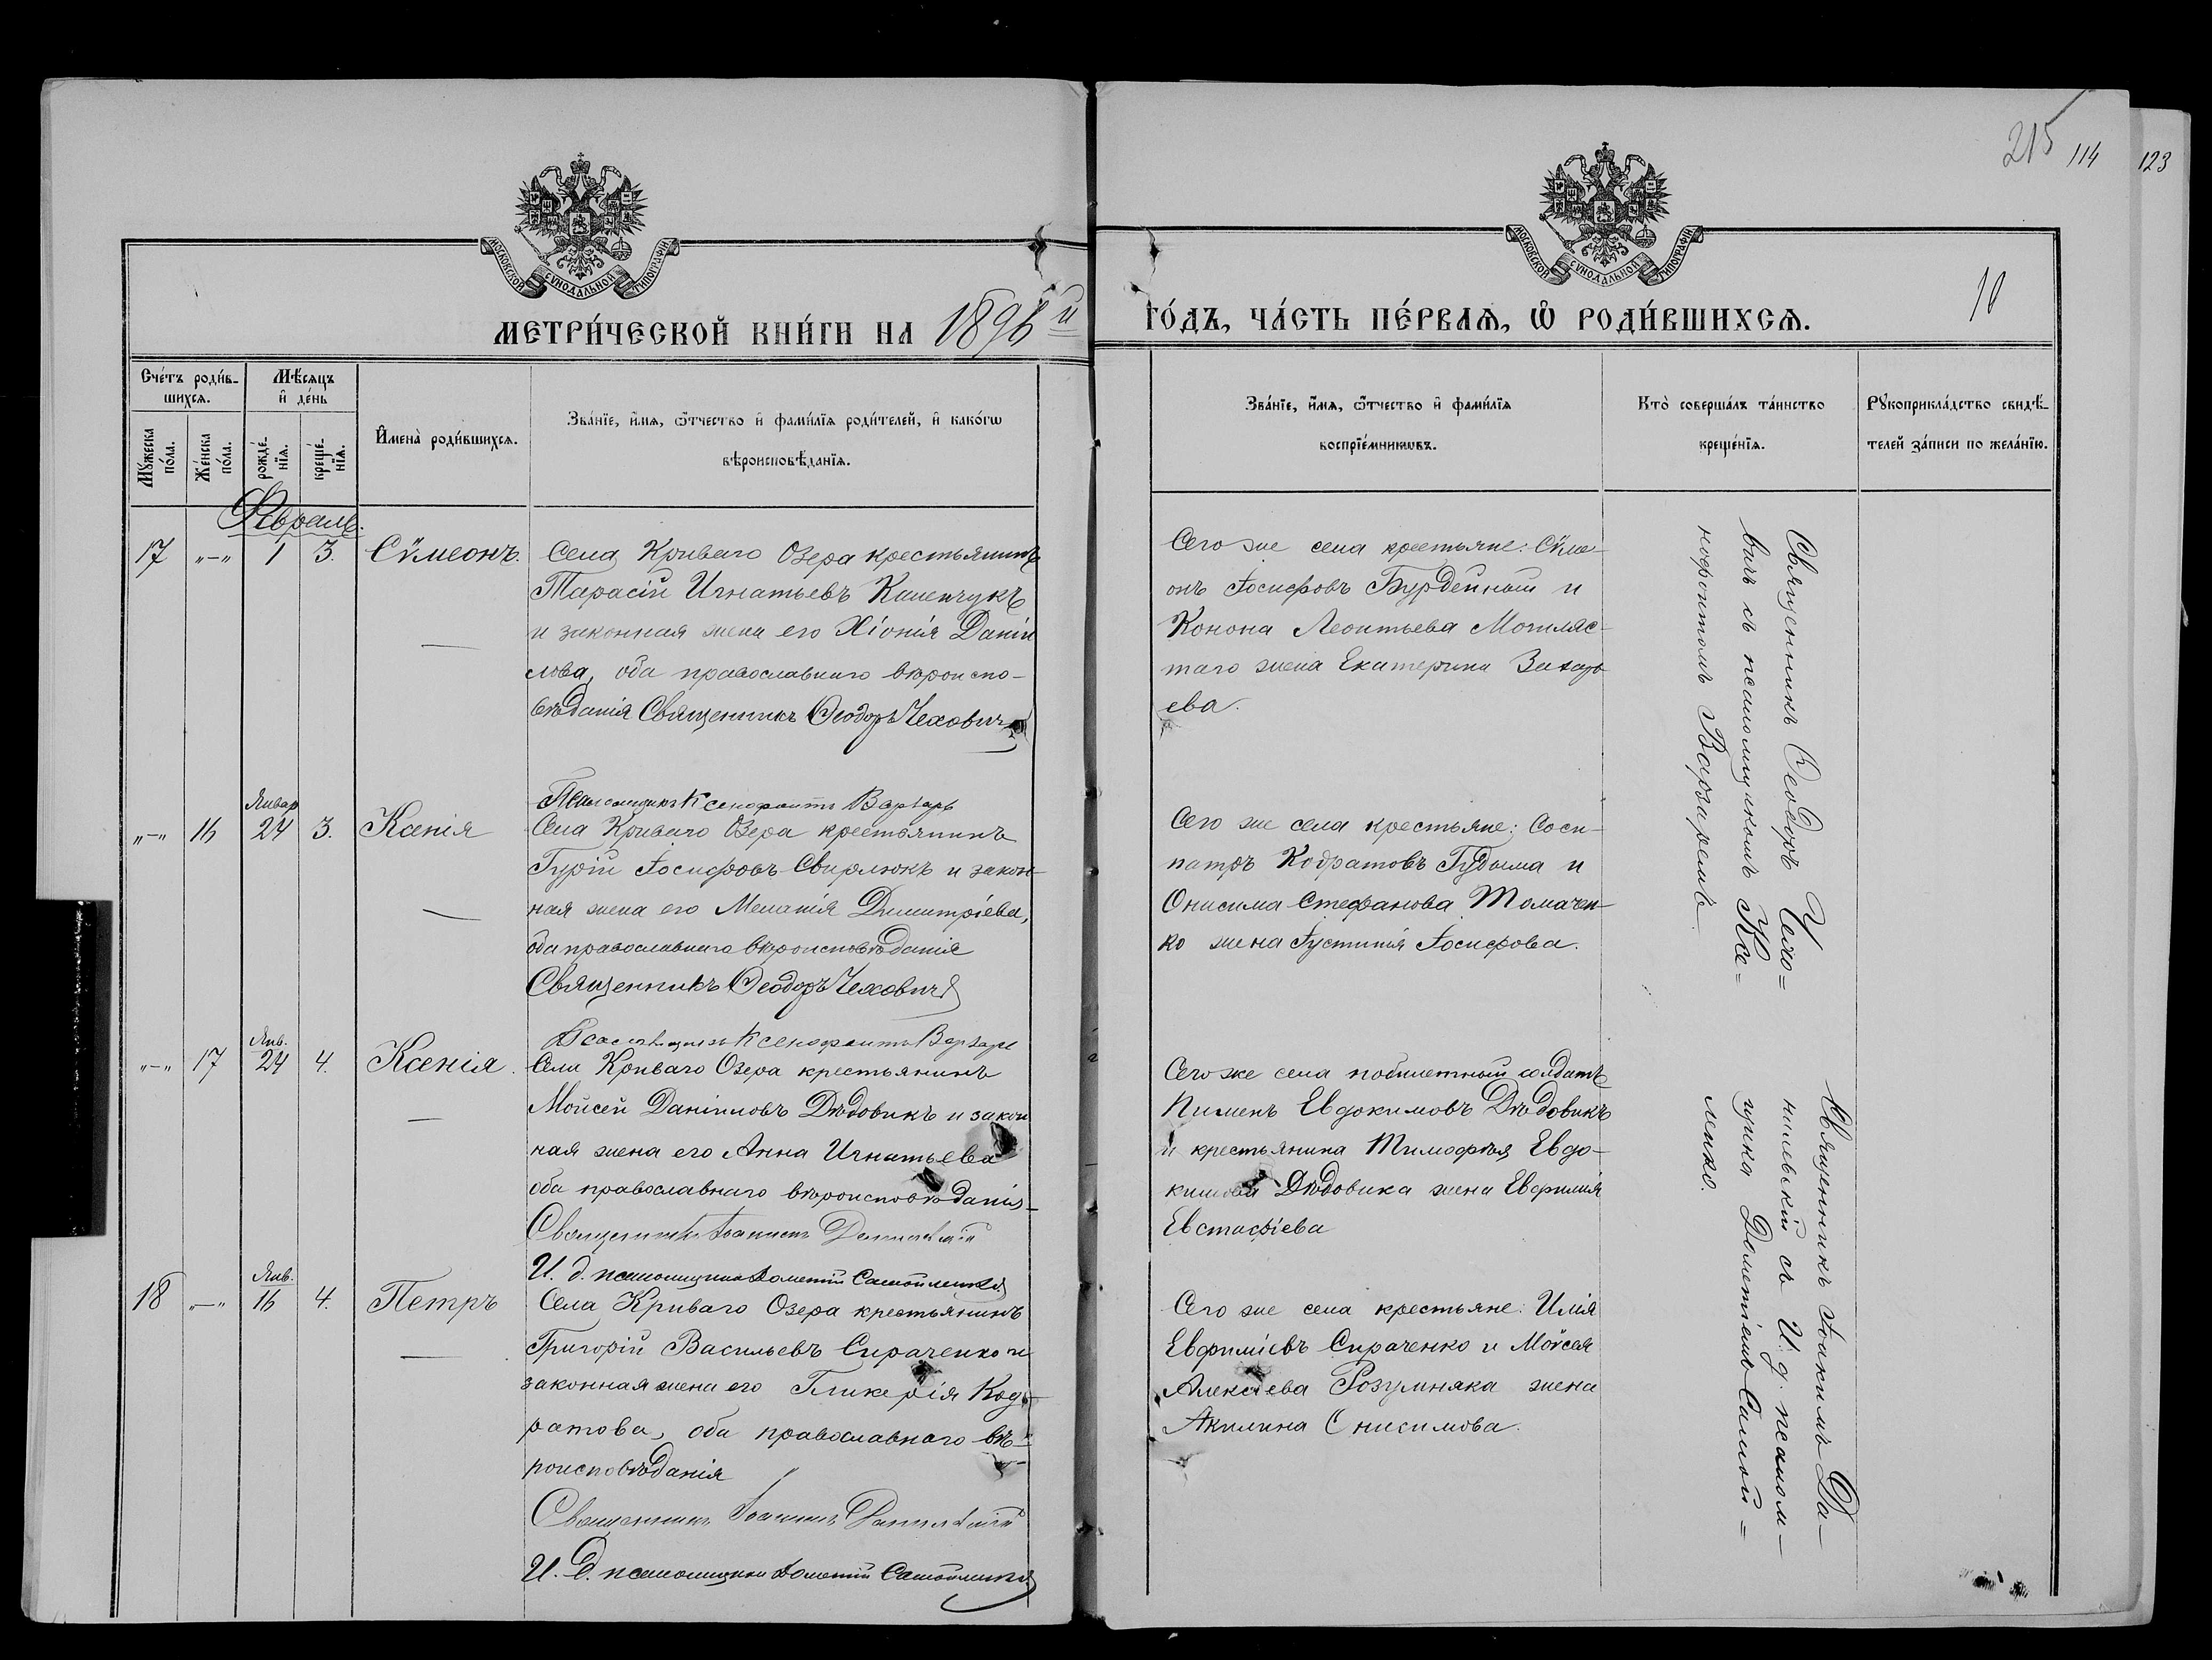 215 114 123
МОСКОВСКОЙ СѴНОДАЛЬНОЙ ТИПОГРАФІИ
МОСКОВСКОЙ СѴНОДАЛЬНОЙ ТИПОГРАФІИ
10
МЕТРИ́ЧЕСКОЙ КНИ́ГИ НА 1896й
ГО́ДЪ, ЧА́СТЬ ПЕ́РВАѦ, Ѡ҆ РОДИ́ВШИХСѦ.
Сче́тъ роди́в-
шихсѧ.
Мꙋжеска
по́ла.
Же́нска
по́ла.
Мѣ́сѧцъ
и҆ де́нь
рожде́-
нїѧ.
креще́-
нїѧ.
И҆мена̀ роди́вшихсѧ.
Зва́нїе, и҆́мѧ, ѻ҆́тчество и҆ фами́лїѧ роди́телей, и҆ како́гѡ
вѣроисповѣ́данїѧ.
Зва́нїе, и҆́мѧ, ѻ҆́тчество и҆ фами́лїѧ
воспрїе́мникѡвъ.
Кто̀ соверша́лъ та́инство
креще́нїѧ.
Рꙋкоприкла́дство свидѣ́-
телей за́писи по жела́нїю.
Февраль.
17 „—„ 1 3. Сѵмеонъ.
Села Криваго Озера крестьянинъ
Тарасій Игнатьевъ Каленчукъ
и законная жена его Хіонія Даніи
лова, оба православнаго вѣроиспо-
вѣданія Священникъ Ѳеодоръ Чеховичъ
Сего же села крестьяне: Сѵме-
онъ Іосифовъ Бурдейный и
Конона Леонтьева Могиляс-
таго жена Екатерина Захарь
ева.
Священникъ Ѳеодоръ Чехо=
вичъ съ псаломщикомъ Ксе=
нофонтомъ Варзаремъ
Псаломщикъ Ксенофонтъ Варзарь
Январ
„—„ 16 24 3. Ксенія
Села Криваго Озера крестьянинъ
Гурій Іосифовъ Свирлюкъ и закон-
ная жена его Меланія Димитріева,
оба православнаго вѣроисповѣданія
Священникъ Ѳеодоръ Чеховичъ
Сего же села крестьяне: Соси-
патръ Кодратовъ Гудыма и
Онисима Стефанова Томачен-
ко жена Іустинія Іосифова.
Псаломщикъ Ксенофонтъ Варзарь
Янв.
„—„ 17 24 4. Ксенія.
Села Криваго Озера крестьянинъ
Мойсей Даніиловъ Дѣдовикъ и закон
ная жена его Анна Игнатьева
оба православнаго вѣроисповѣданія-
Священникъ Іоакимъ Данилевскій
И. д. псаломщика Дометій Самойленко
Сего же села побилетный солдатъ
Пименъ Евдокимовъ Дѣдовикъ
и крестьянина Тимофея Евдо-
кимова Дѣдовика жена Евфимія
Евстафіева
Священникъ Іоакимъ Да-
нилевскій съ И. д. псалом-
щика Дометіемъ Самой=
ленко.
Янв.
18 „—„ 16 4. Петръ
Села Криваго Озера крестьянинъ
Григорій Васильевъ Сираченко и
законная жена его Гликерія Код-
ратова, оба православнаго вѣ-
роисповѣданія
Священникъ Іоакимъ Данилевскій
И. д. псаломщика Дометій Самойленко
Сего же села крестьяне: Илія
Евфиміевъ Сираченко и Мойсея
Алексѣева Розумняка жена
Акилина Онисимова.